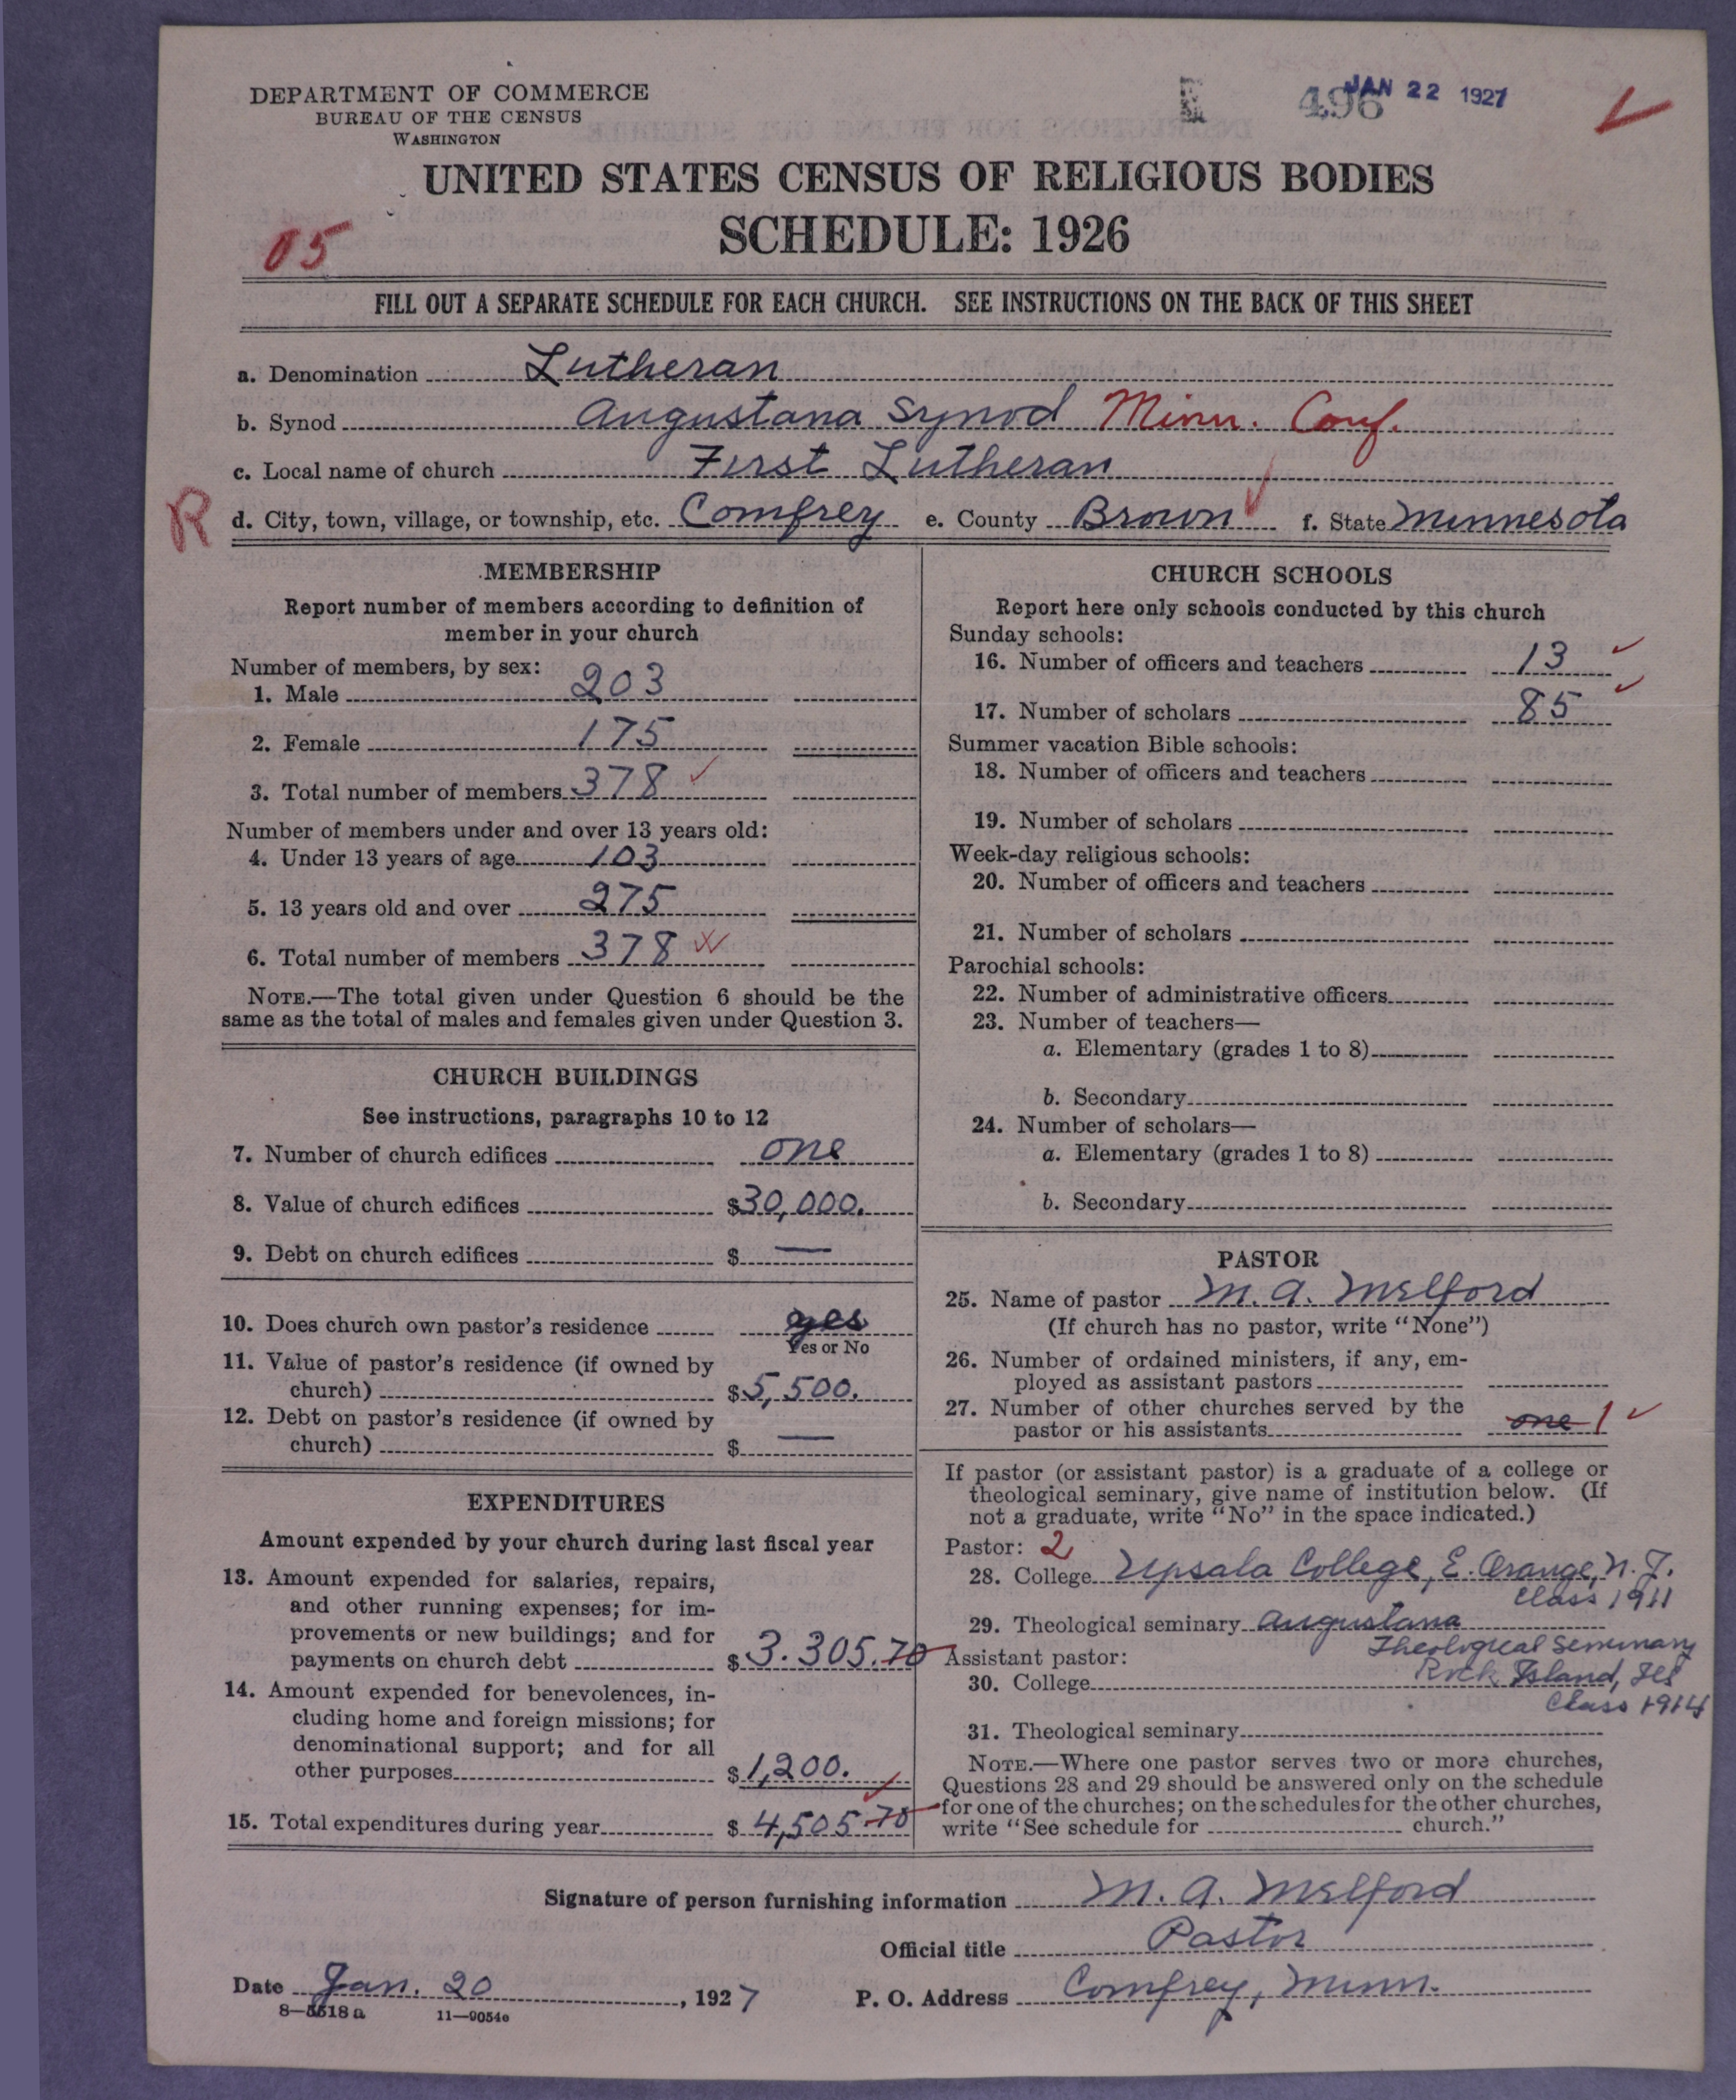 DEPARTMENT OF COMMERCE
BUREAU OF THE CENSUS
WASHINGTON
496
JAN 22 1927
UNITED STATES CENSUS OF RELIGIOUS BODIES
SCHEDULE: 1926
05
FILL OUT A SEPARATE SCHEDULE FOR EACH CHURCH. SEE INSTRUCTIONS ON THE BACK OF THIS SHEET
a. Denomination Lutheran
b. Synod Augustana Synod Minn. Conf.
c. Local name of church First Lutheran
R d. City, town, village, or township, etc. Comfrey e. County Brown f. State Minnesota
MEMBERSHIP
Report number of members according to definition of
member in your church
Number of members, by sex:
1. Male 203
2. Female 175
3. Total number of members 378
Number of members under and over 13 years old:
4. Under 13 years of age 103
5. 13 years old and over 275
6. Total number of members 378
NOTE.—The total given under Question 6 should be the
same as the total of males and females given under Question 3.
CHURCH BUILDINGS
See instructions, paragraphs 10 to 12
7. Number of church edifices one
8. Value of church edifices $30,000.
9. Debt on church edifices $ —
10. Does church own pastor's residence yes
Yes or No
11. Value of pastor's residence (if owned by
church) $5,500.
12. Debt on pastor's residence (if owned by
church) $ —
EXPENDITURES
Amount expended by your church during last fiscal year
13. Amount expended for salaries, repairs,
and other running expenses; for im-
provements or new buildings; and for
payments on church debt $3.305.70
14. Amount expended for benevolences, in-
cluding home and foreign missions; for
denominational support; and for all
other purposes $1,200.
15. Total expenditures during year $4,505.70
CHURCH SCHOOLS
Report here only schools conducted by this church
Sunday schools:
16. Number of officers and teachers 13
17. Number of scholars 85
Summer vacation Bible schools:
18. Number of officers and teachers
19. Number of scholars
Week-day religious schools:
20. Number of officers and teachers
21. Number of scholars
Parochial schools:
22. Number of administrative officers
23. Number of teachers—
a. Elementary (grades 1 to 8)
b. Secondary
24. Number of scholars—
a. Elementary (grades 1 to 8)
b. Secondary
PASTOR
25. Name of pastor M. A. Melford
(If church has no pastor, write "None")
26. Number of ordained ministers, if any, em-
ployed as assistant pastors
27. Number of other churches served by the
pastor or his assistants one 1
If pastor (or assistant pastor) is a graduate of a college or
theological seminary, give name of institution below. (If
not a graduate, write "No" in the space indicated.)
Pastor: 2
28. College Upsala College, E. Orange, N. J.
Class 1911
29. Theological seminary Augustana
Theological Seminary
Assistant pastor:
Rock Island, Ills
30. College
Class 1914
31. Theological seminary
NOTE.—Where one pastor serves two or more churches,
Questions 28 and 29 should be answered only on the schedule
for one of the churches; on the schedules for the other churches,
write "See schedule for church."
Signature of person furnishing information M. A. Melford
Official title Pastor
Date Jan. 20, 1927 P. O. Address Comfrey, Minn.
8—5518a 11—9054e